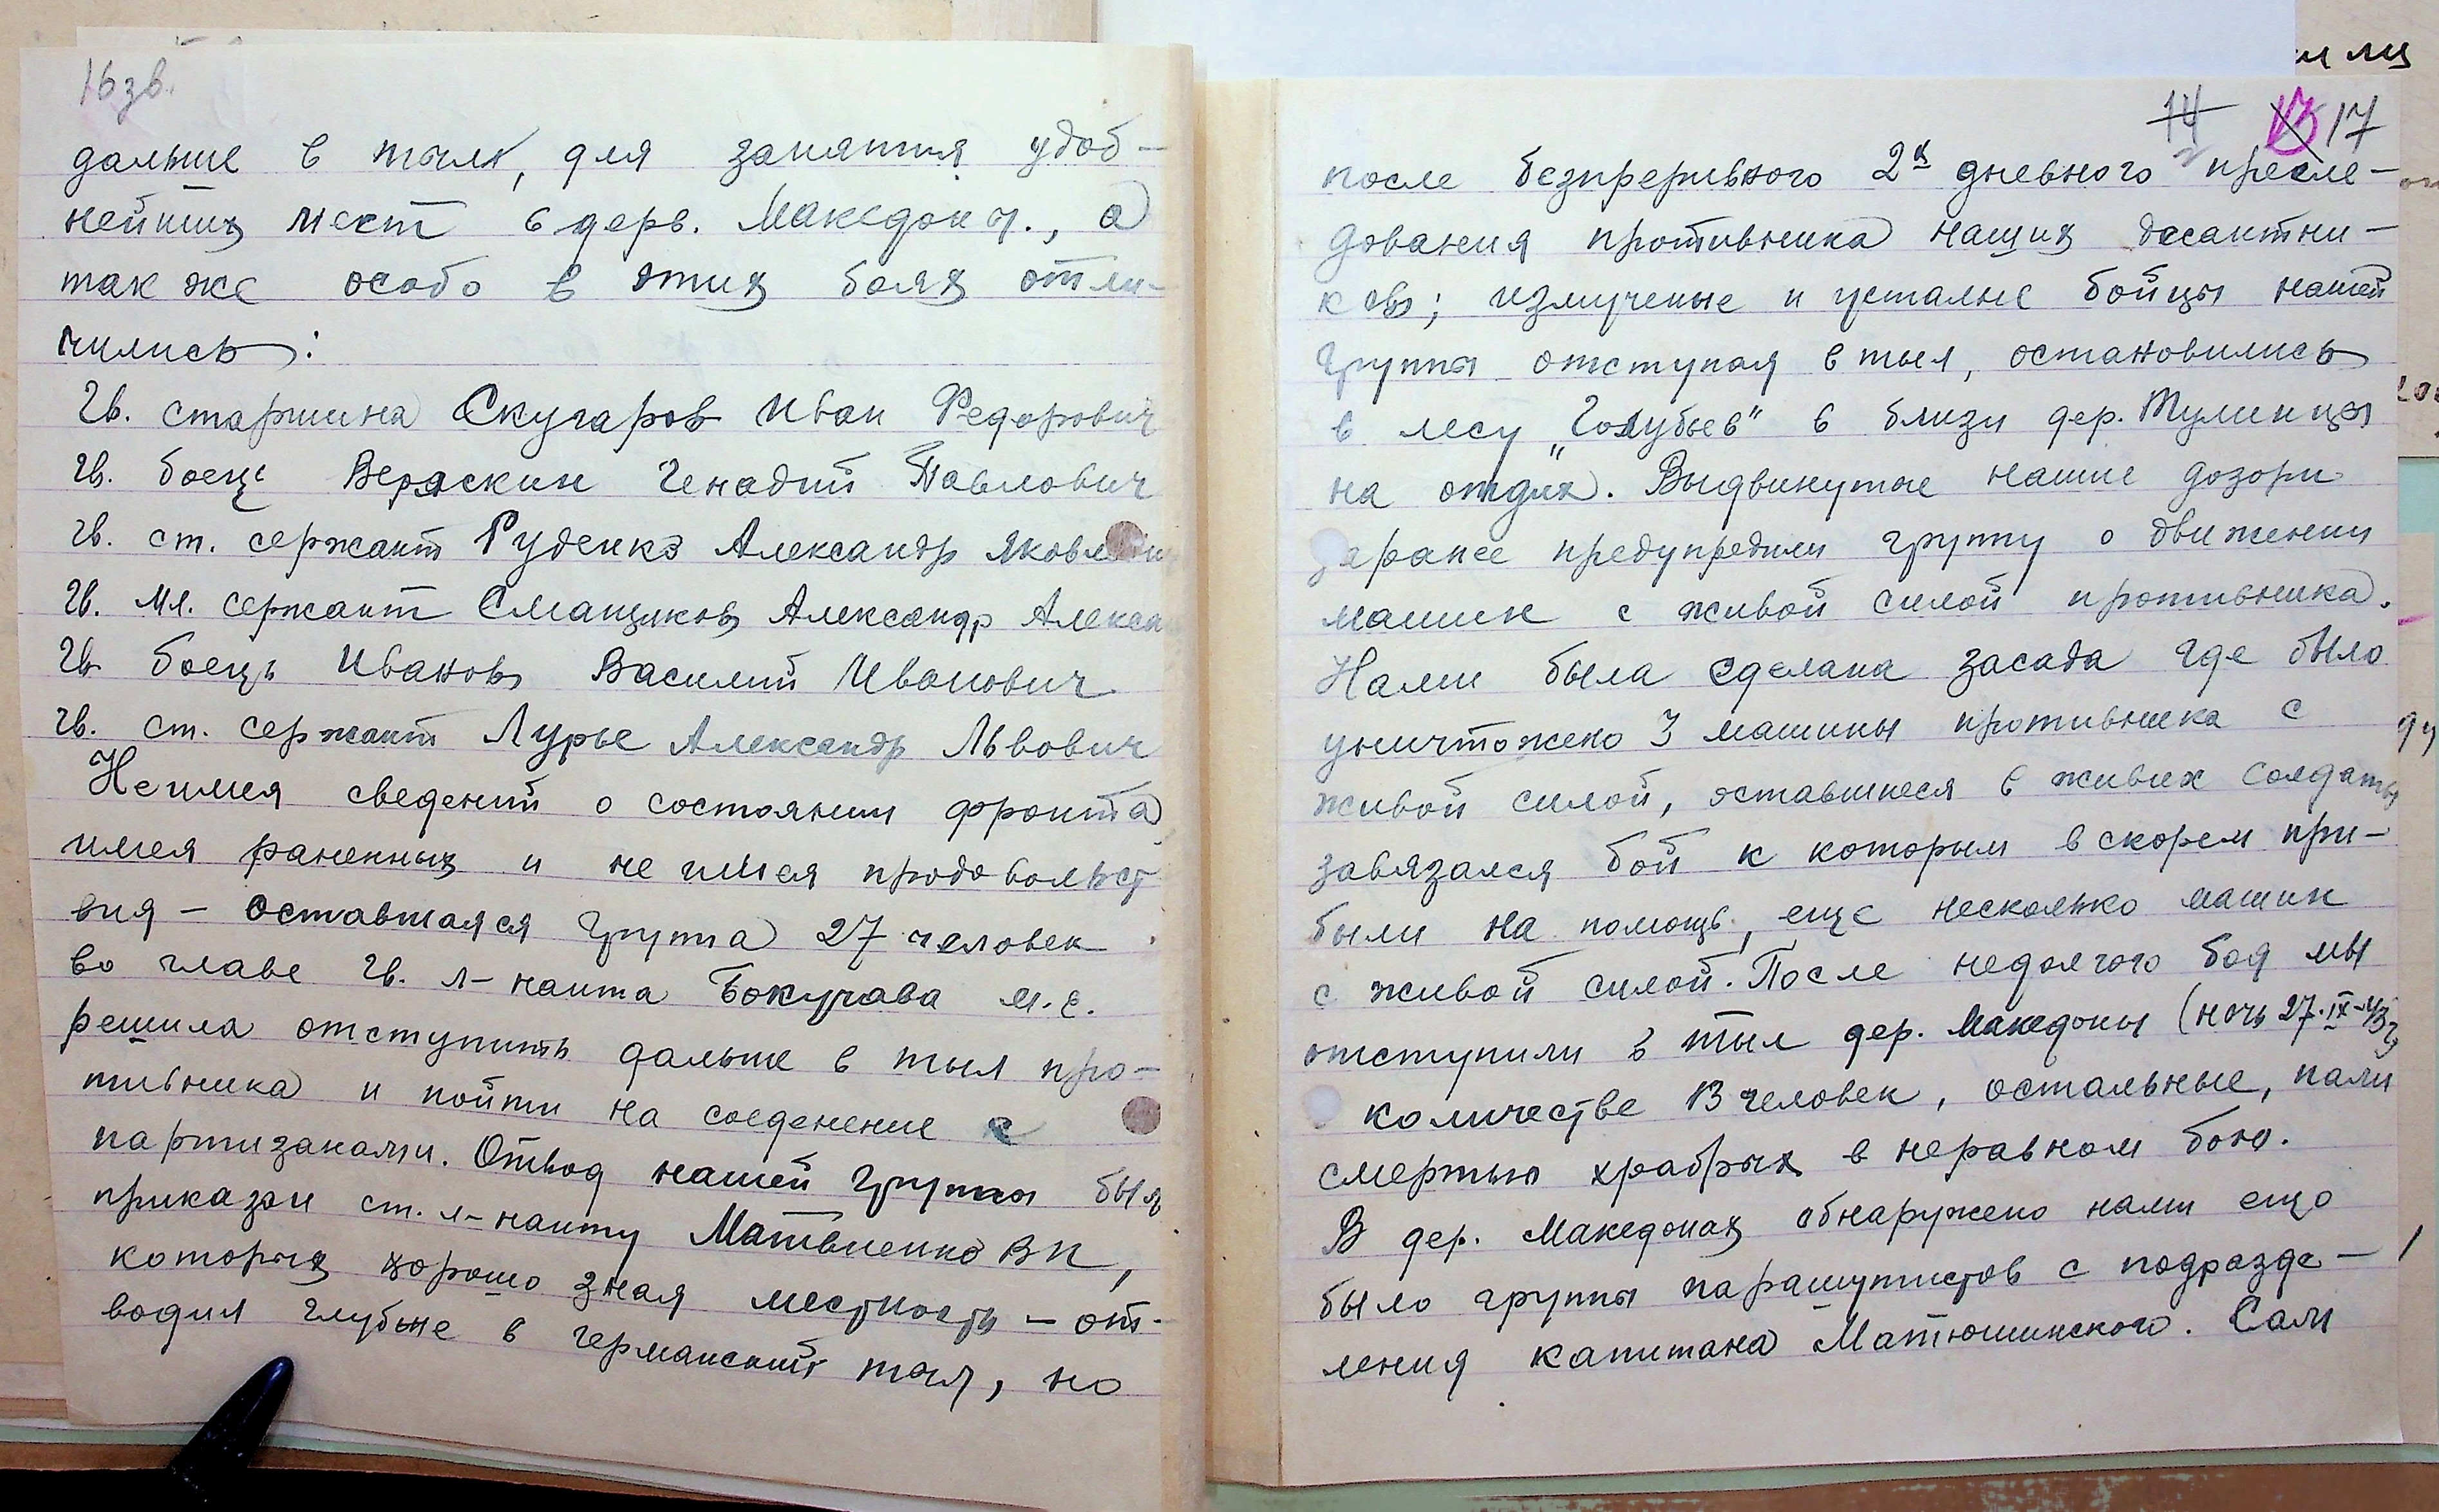 16 зв.
дальше в тылу, для занятия удоб-
нейших мест в дерв. Македон ы., а
так же особо в этих боях отли-
чились:
Гв. старшина Скугаров Иван Федорович
Гв. боец Веряскин Генадий Павлович
Гв. ст. сержант Руденко Александр
Гв. мл. сержант Смащиков Александр Алекса
Гв боець Иванов Василий Иванович
Гв. ст. сержант Лурье Александр Львович
Не имея сведений о состоянии фронта
имея раненных и не имея продовольст
вия - оставшаяся группа 27 человек
во главе Гв. л-нанта Бокучава М.С.
решила отступить дальше в тыл про-
тивника и пойти на соеденение с
партизанами. Отвод нашей группы был
приказан ст. л-нанту Матвиенко ВК,
которых хорошо зная местность - от-
водил глубже в германский тыл, но
14 13 17
после безпреривного 2х дневного пресле-
дования противника наших десантни-
ков; измученые и усталые бойцы нашей
группы отступая в тыл, остановились
в лесу „Голубьев" в близи дер. Тулинцы
на отдых. Выдвинутые наши дозори
заранее предупредили группу о движении
машин с живой силой противника.
Нами была сделана засада где было
уничтожено 3 машины противника с
живой силой, оставшиеся в живых солдаты
завязался бой к которым в скорем при-
были на помощь, еще несколько машин
с живой силой. После недолгого боя мы
отступили в тыл дер. Македоны (ночь 27.IX-43г)
количестве 13 человек, остальные, пали
смертью храбрых в неравном бою.
В дер. Македонах обнаружено нами ещо
было группы парашутистов с подразде-
ления капитана Матюшинского. Сам